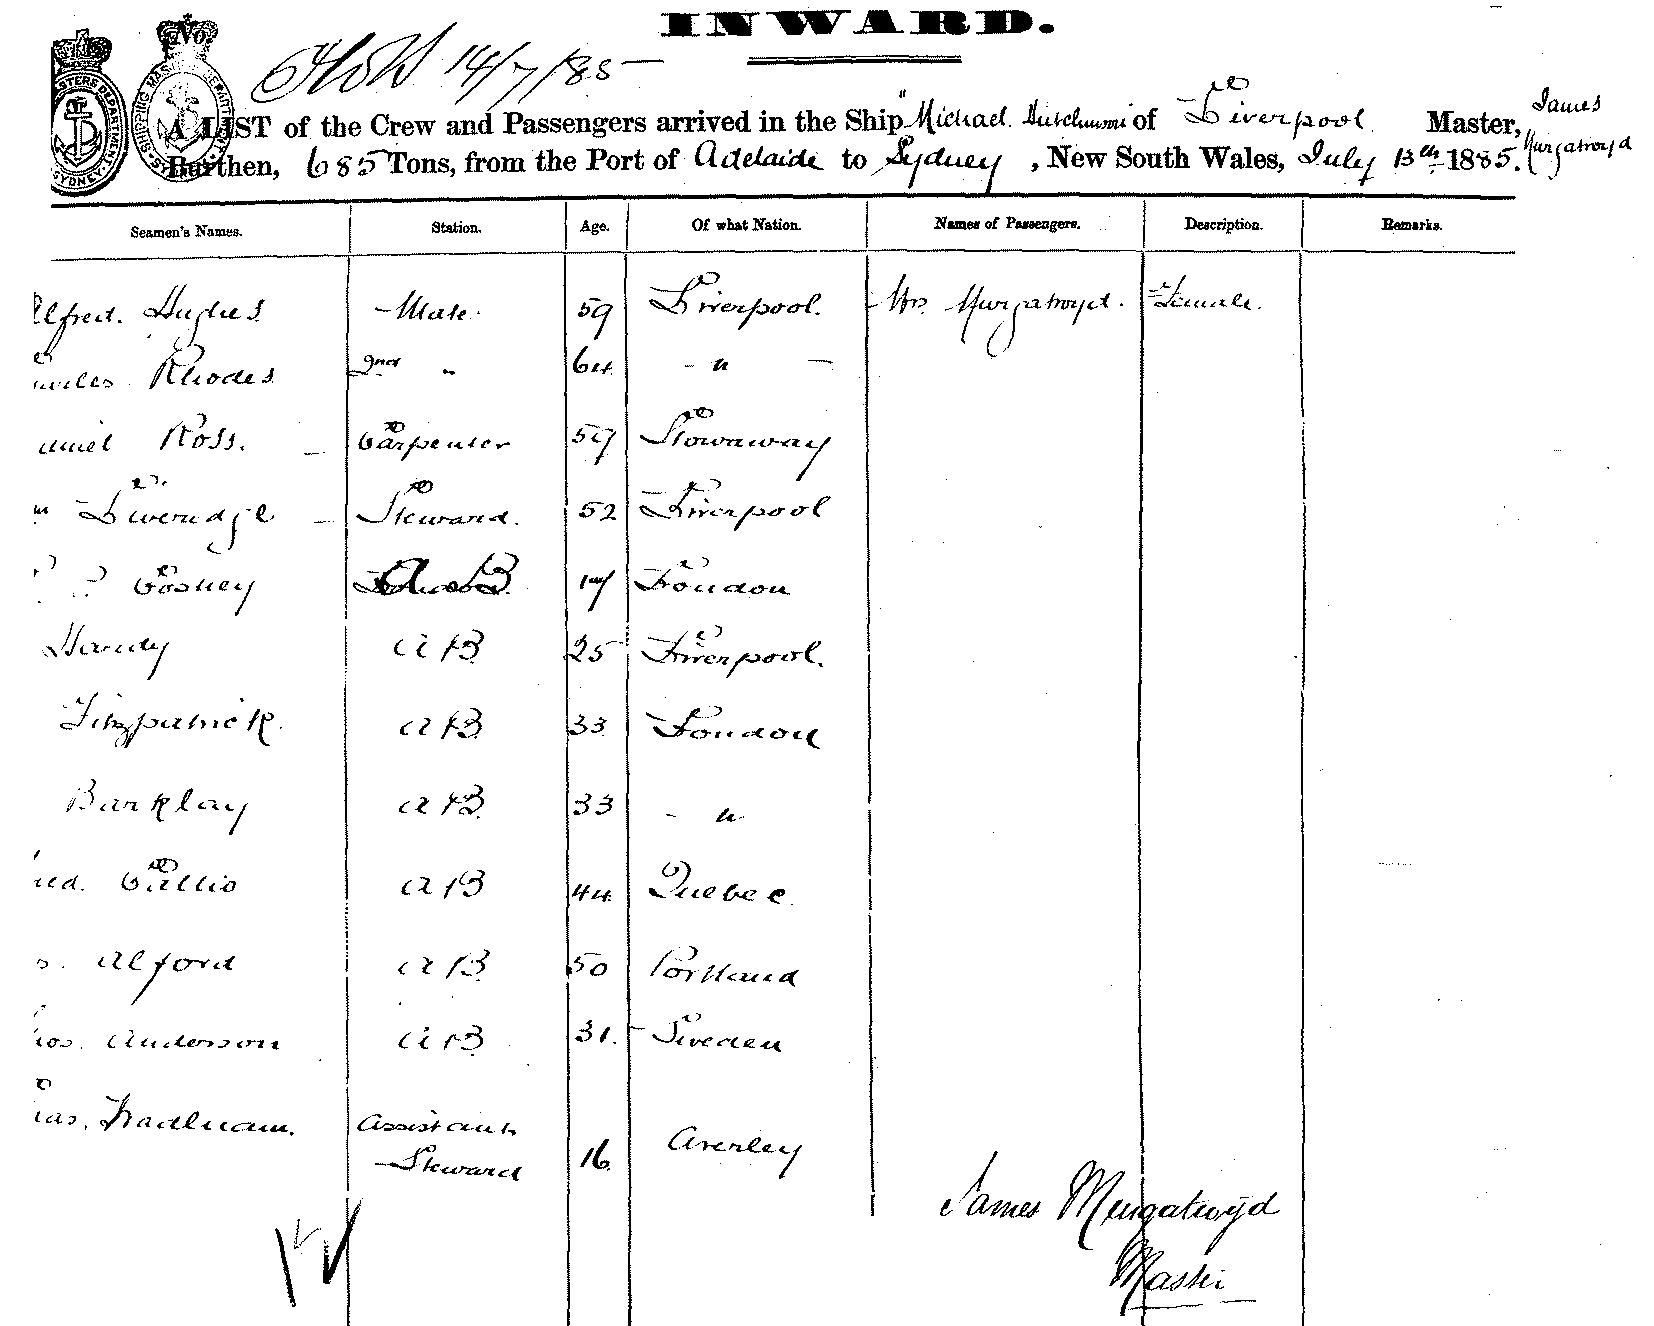 INWARD.
No.
14/7/85
A LIST of the Crew and Passengers arrived in the Ship "Michael Hutchinson of Liverpool Master, James Murgatroyd
Burthen, 685 Tons, from the Port of Adelaide to Sydney, New South Wales, July 13th 1885.
Seamen's Names. Station. Age. Of what Nation. Names of Passengers. Description. Remarks.
Alfred. Hughes Mate. 59 Liverpool. Mrs. Murgatroyd. Female.
Rhodes 2nd " 64 - " -
Ross. Carpenter 59 Stornaway
Steward. 52 Liverpool
17 London
Handy AB 25 Liverpool.
Fitzpatrick. AB 33 London
Barklay AB 33 - "
AB 44 Quebec.
Alford AB 50 Portland
Anderson AB 31. Sweden
Assistant
Steward 16
James Murgatroyd
Master